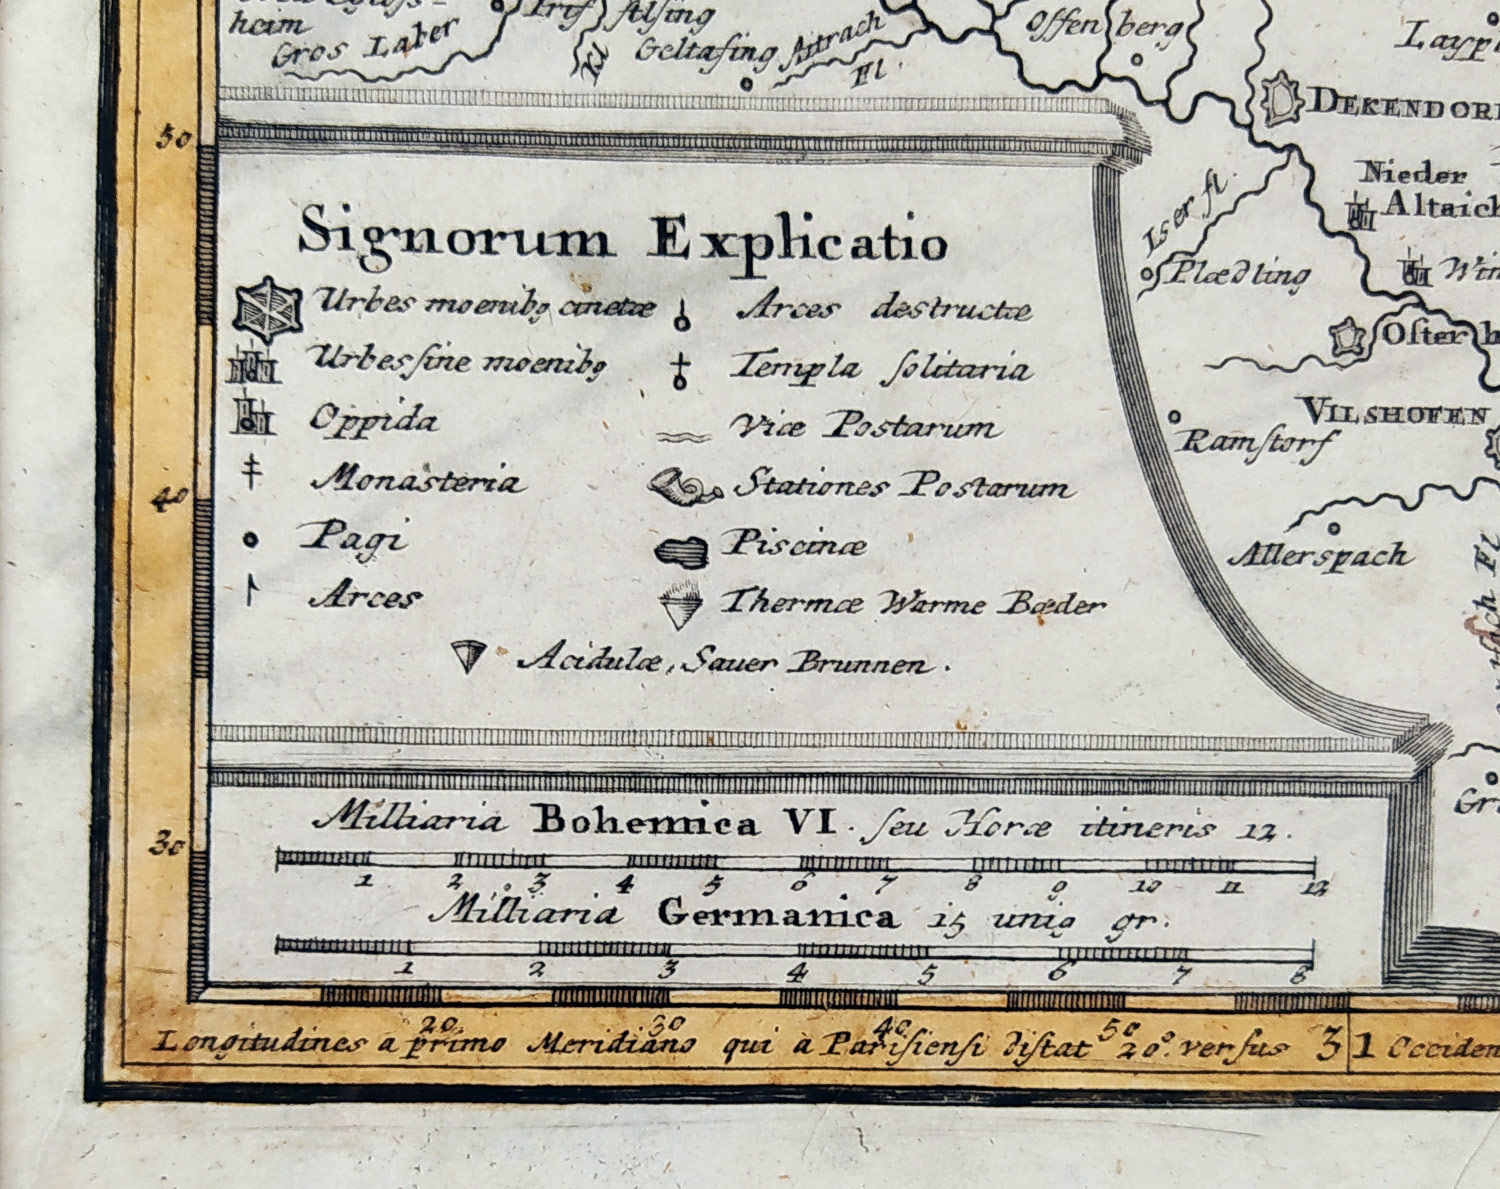 heim
Gros Laber
Alsing
Geltafing
Aitrach
Fl.
Kl
Offenberg
DEKENDORF
50
Iser fl.
Nieder
Altaich
Plædling
Win
Signorum Explicatio
Urbes moenibꝯ cinctæ
Arces destructæ
Osterh
Urbes ſine moenibꝯ
Templa ſolitaria
VILSHOFEN
Oppida
Viæ Postarum
Ramſtorf
Monasteria
Stationes Postarum
40
Pagi
Piscinæ
Allerspach
Arces
Thermæ Warme Bæder
Acidulæ, Sauer Brunnen.
Gri
Milliaria Bohemica VI. ſeu Horæ itineris 12.
30
1 2 3 4 5 6 7 8 9 10 11 12
Milliaria Germanica 15 uniꝯ gr.
1 2 3 4 5 6 7 8
20 30 40 50
Longitudines a primo Meridiano qui à Pariſienſi diſtat 20º. verſus 31 Occiden